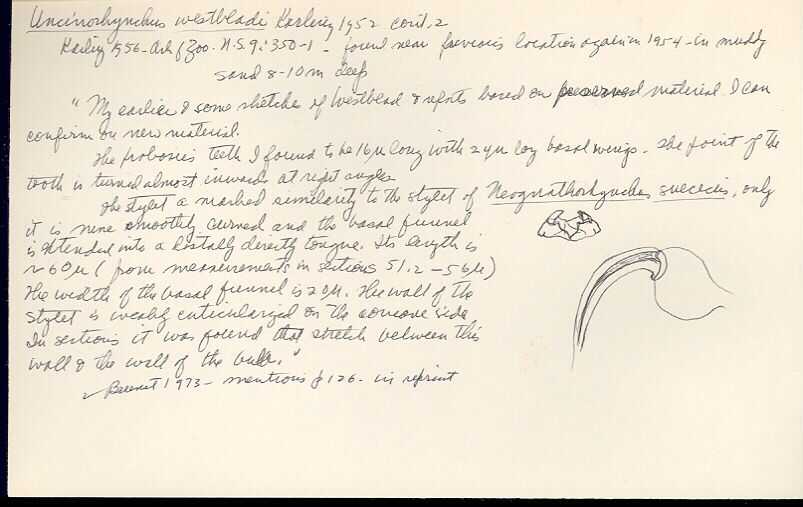 Uncinorhynchus westbladi Karling 1952 cont. 2
Karling 1956 - Ark f Zoo. N.S. 9: 350-1 - found near previous location again in 1954 - in muddy
sand 8-10 m deep
"My earlier & some sketches of Westblad & reports based on preserved material I can
confirm on new material.
The proboscis teeth I found to be 16µ long with 24µ long basal wings. The point of the
tooth is turned almost inwards at right angles
The stylet a marked similarity to the stylet of Neognathorhynchus suecicus, only
it is more smoothly curved and the basal funnel
is extended into a distally directly tongue. Its length is
~ 60µ (from measurements in sections 51.2 - 56µ)
The width of the basal funnel is 20µ. The wall of the
stylet is weakly cuticularized on the concave side
In sections it was found that stretch between this
wall & the wall of the bulb."
1973 - mentions p 126 - in reprint